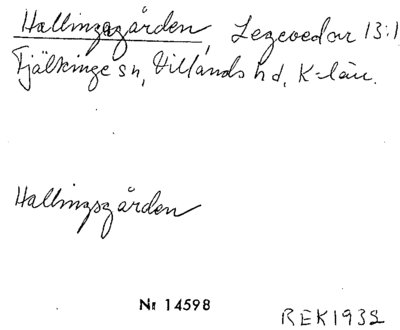 Hallingsgården, Legeved nr 13:1
Fjälkinge sn, Villands hd, K-län.
Hallingsgården
Nr 14598
REK1932